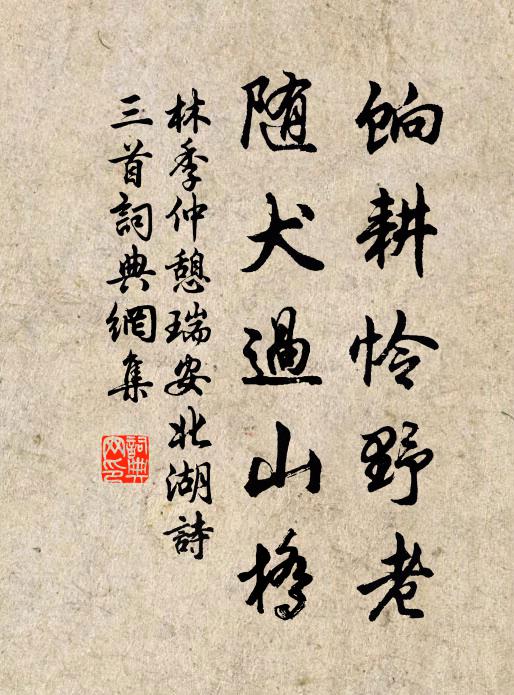 餉耕怜野老
随犬過山橋
林季仲憩瑞安北湖詩
三首詞典網集
詞典
网印